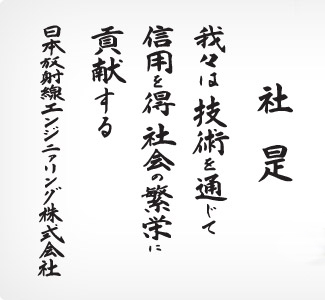 社是
我々は技術を通じて
信用を得社会の繁栄に
貢献する
日本放射線エンジニアリング株式会社